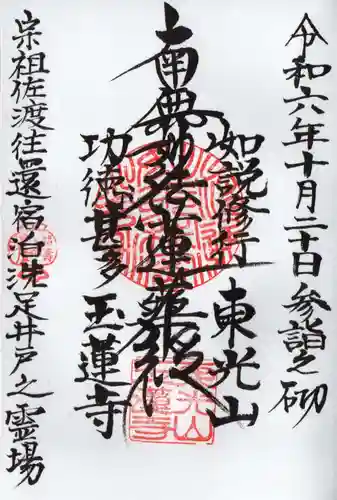 令和六年十月二十日参詣之砌
如説修行 東光山
南無妙法蓮華経
功徳甚多 玉蓮寺
宗祖佐渡往還宿泊洗足井戸之霊場